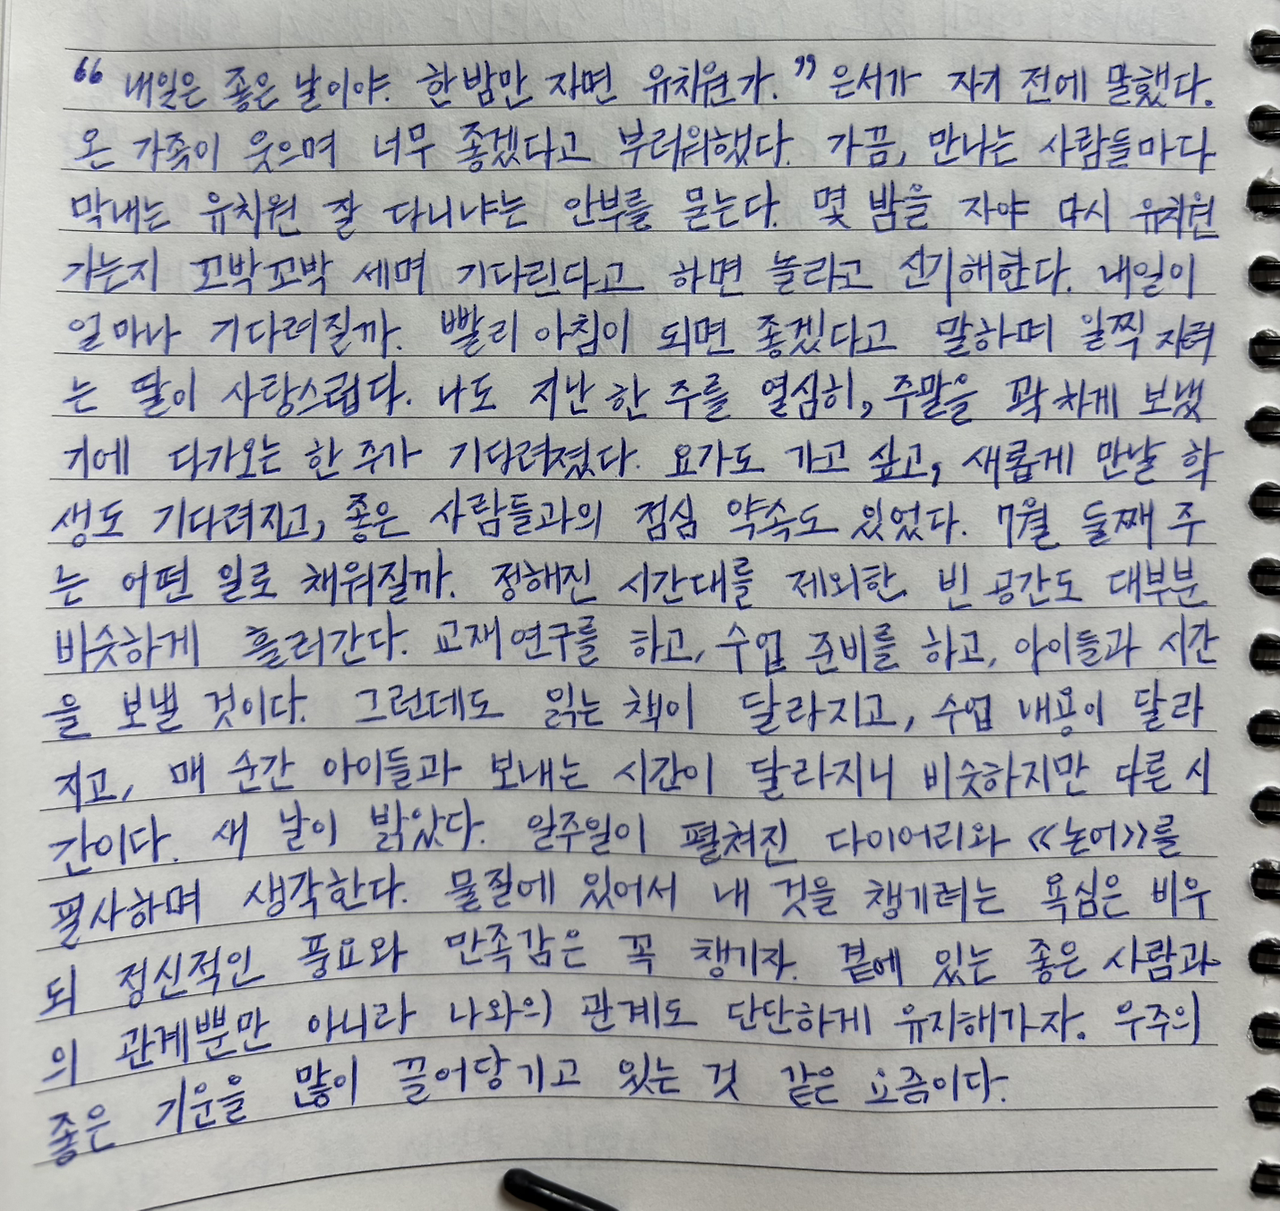 “ 내일은 좋은 날이야. 한 밤만 자면 유치원가. ” 은서가 자기 전에 말했다.
온 가족이 웃으며 너무 좋겠다고 부러워했다. 가끔, 만나는 사람들마다
막내는 유치원 잘 다니냐는 안부를 묻는다. 몇 밤을 자야 다시 유치원
가는지 꼬박꼬박 세며 기다린다고 하면 놀라고 신기해한다. 내일이
얼마나 기다려질까. 빨리 아침이 되면 좋겠다고 말하며 일찍 자려
는 딸이 사랑스럽다. 나도 지난 한 주를 열심히, 주말을 꽉 차게 보냈
기에 다가오는 한 주가 기다려졌다. 요가도 가고 싶고, 새롭게 만날 학
생도 기다려지고, 좋은 사람들과의 점심 약속도 있었다. 7월 둘째 주
는 어떤 일로 채워질까. 정해진 시간대를 제외한 빈 공간도 대부분
비슷하게 흘러간다. 교재 연구를 하고, 수업 준비를 하고, 아이들과 시간
을 보낼 것이다. 그런데도 읽는 책이 달라지고, 수업 내용이 달라
지고, 매 순간 아이들과 보내는 시간이 달라지니 비슷하지만 다른 시
간이다. 새 날이 밝았다. 일주일이 펼쳐진 다이어리와 《논어》를
필사하며 생각한다. 물질에 있어서 내 것을 챙기려는 욕심은 비우
되 정신적인 풍요와 만족감은 꼭 챙기자. 곁에 있는 좋은 사람과
의 관계뿐만 아니라 나와의 관계도 단단하게 유지해가자. 우주의
좋은 기운을 많이 끌어당기고 있는 것 같은 요즘이다.